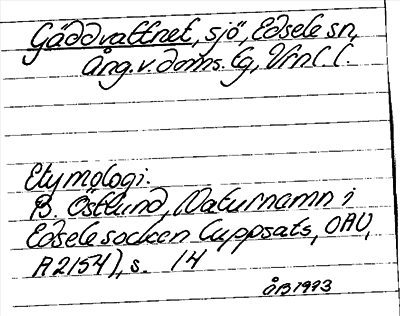 Gäddvattnet, sjö, Edsele sn,
Ång. v. doms. lg, Vrnl l.
Etymologi.
B. Östlund, Naturnamn i
Edsele socken (uppsats, OAU,
A 2154), s. 14
ÅB 1993